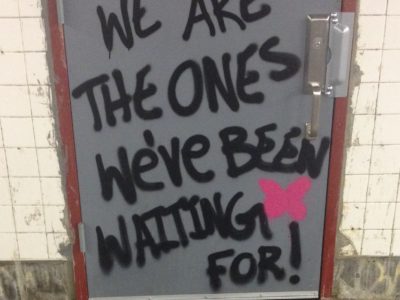 WE ARE
THE ONES
WE'VE BEEN
WAITING
FOR!